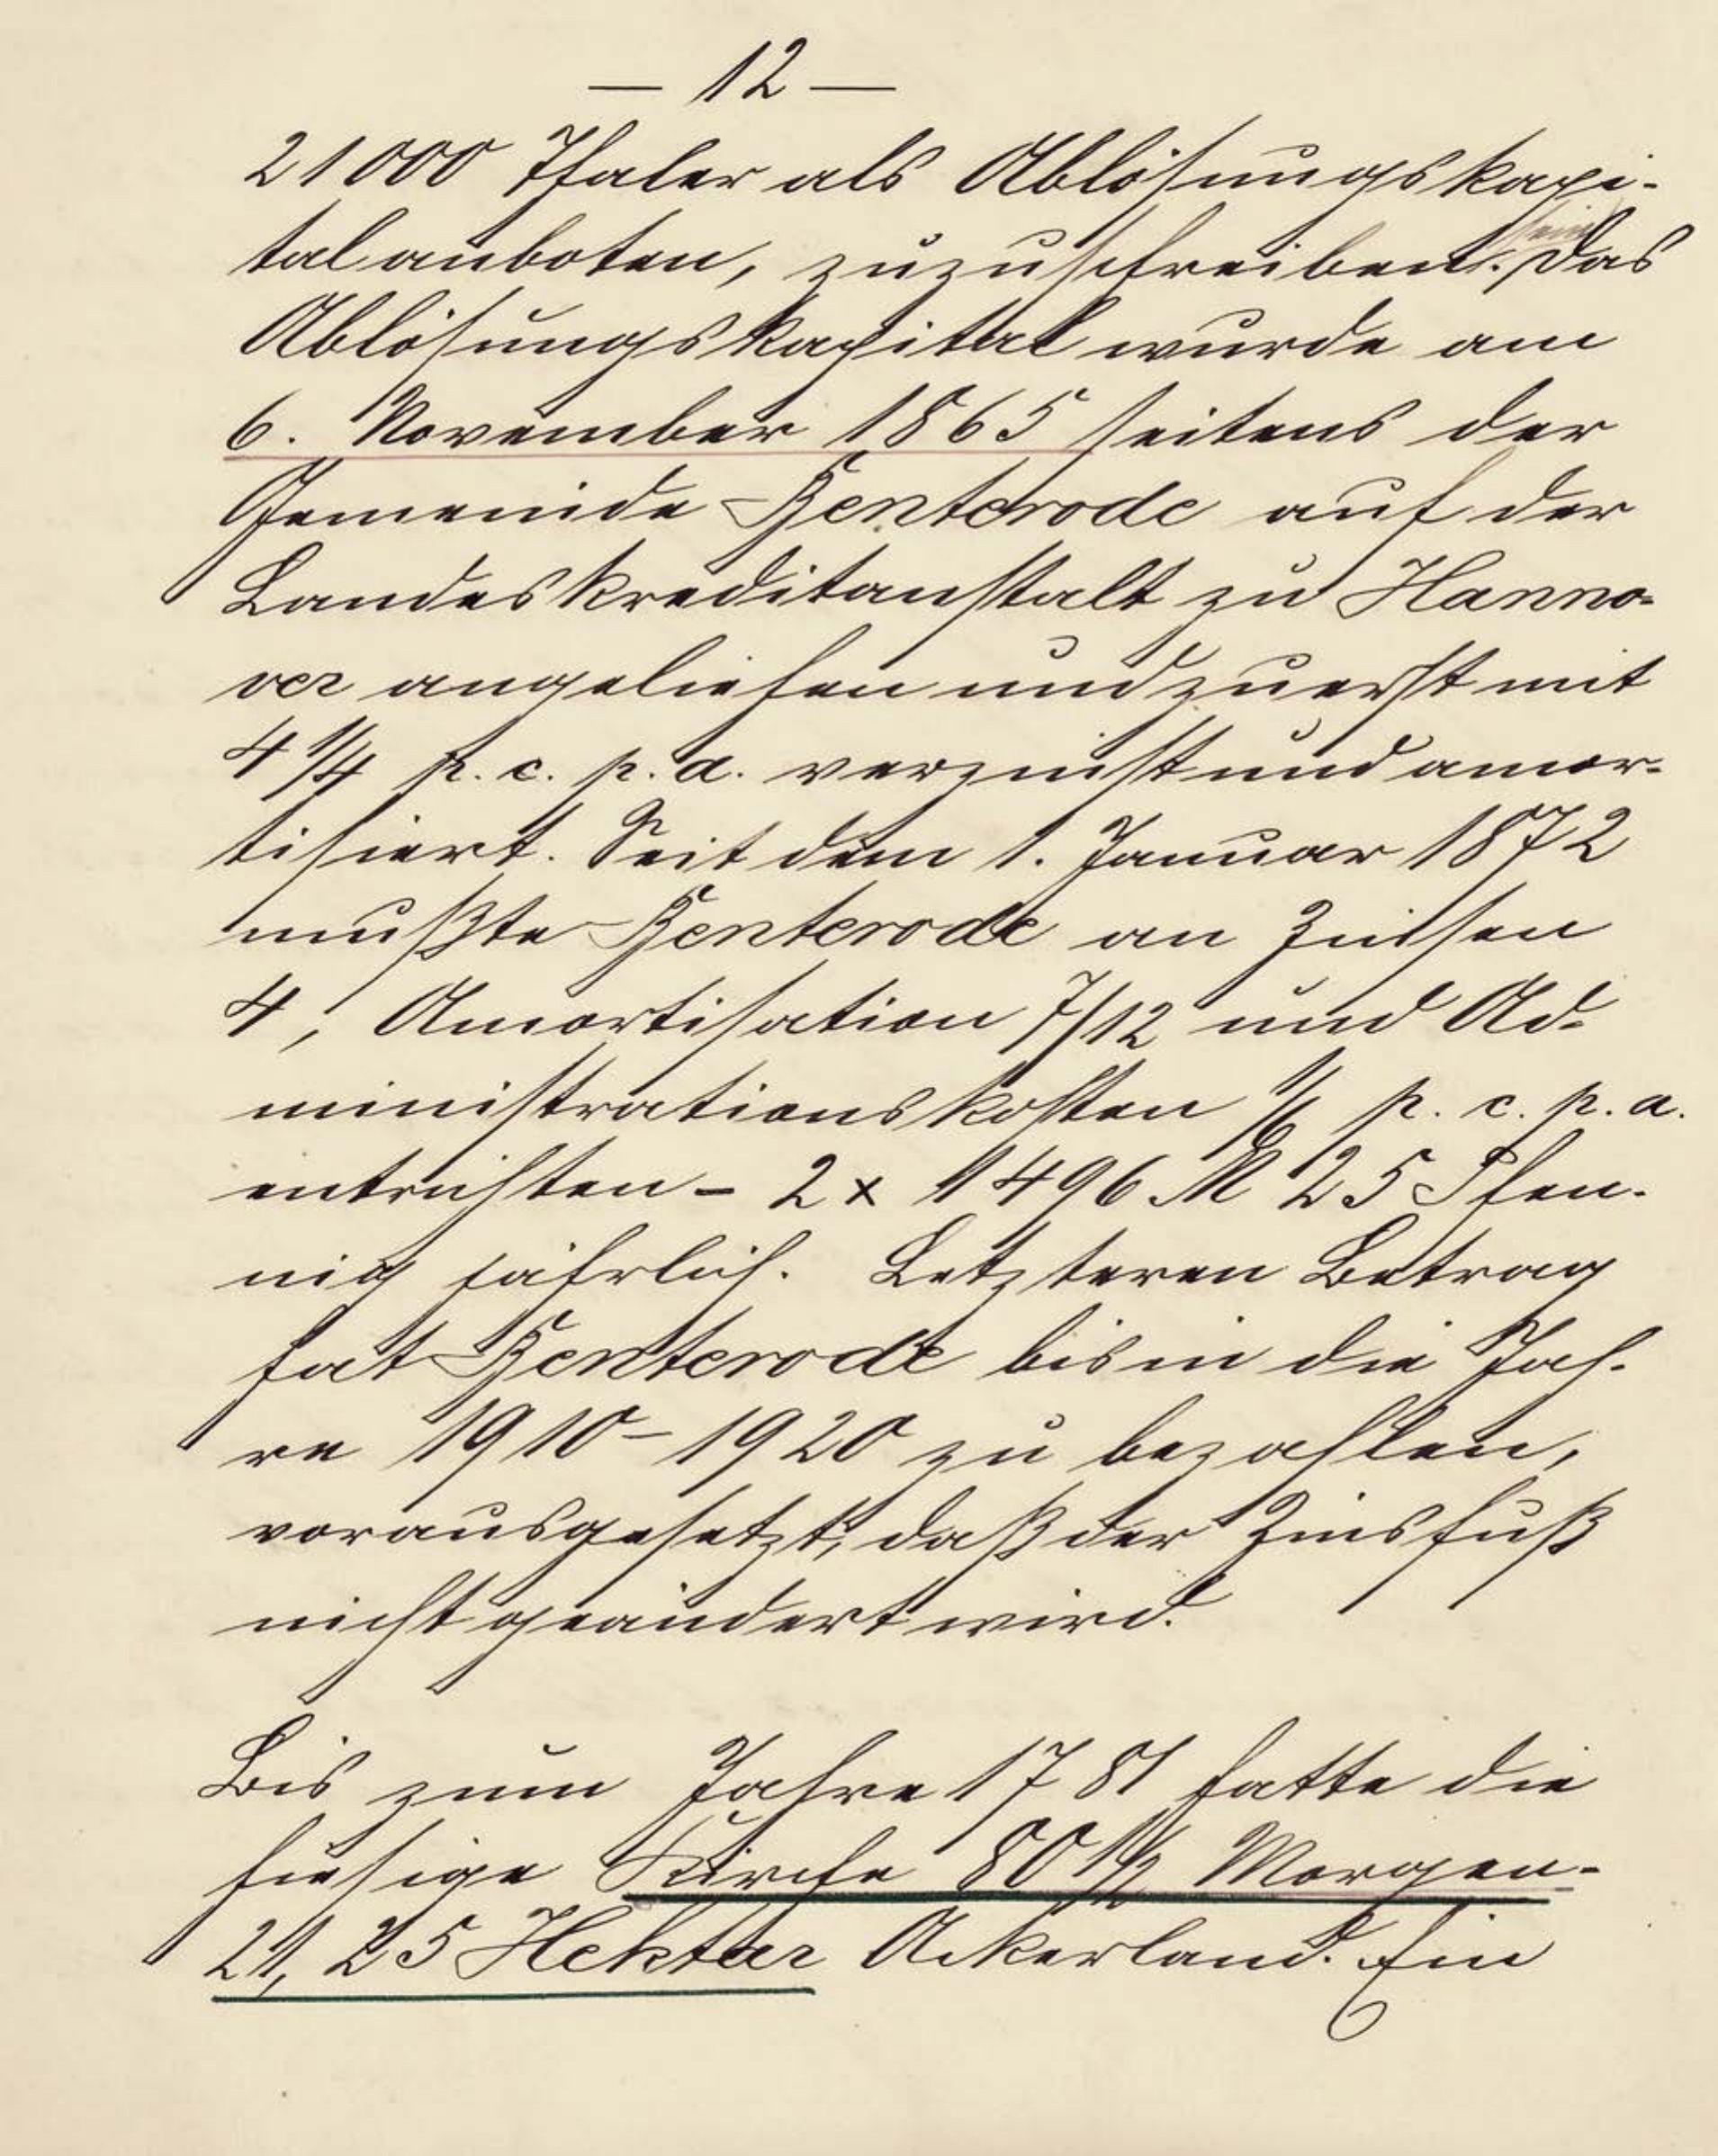 — 12 —
21000 Thaler als Ablösungskapi-
tal anboten, zuzuschreiben. Das
Ablösungskapital wurde am
6. November 1865 seitens der
Gemeinde Kenterode auf der
Landeskreditanstalt zu Hanno-
ver angeliehen und zuerst mit
4 1/4 p. c. p. a. verzinst und amor-
tisiert. Seit dem 1. Januar 1872
mußte Kenterode an Zinsen
4, Amortisation 7/12 und Ad-
ministrationskosten 1/6 p. c. p. a.
entrichten - 2 x 1496 M 25 Pfen-
nig jährlich. Letzteren Betrag
hat Kenterode bis in die Jah-
re 1910-1920 zu bezahlen,
vorausgesetzt, daß der Zinsfuß
nicht geändert wird.
Bis zum Jahre 1781 hatte die
hiesige Kirche 80 1/2 Morgen-
21,25 Hektar Ackerland. Ein